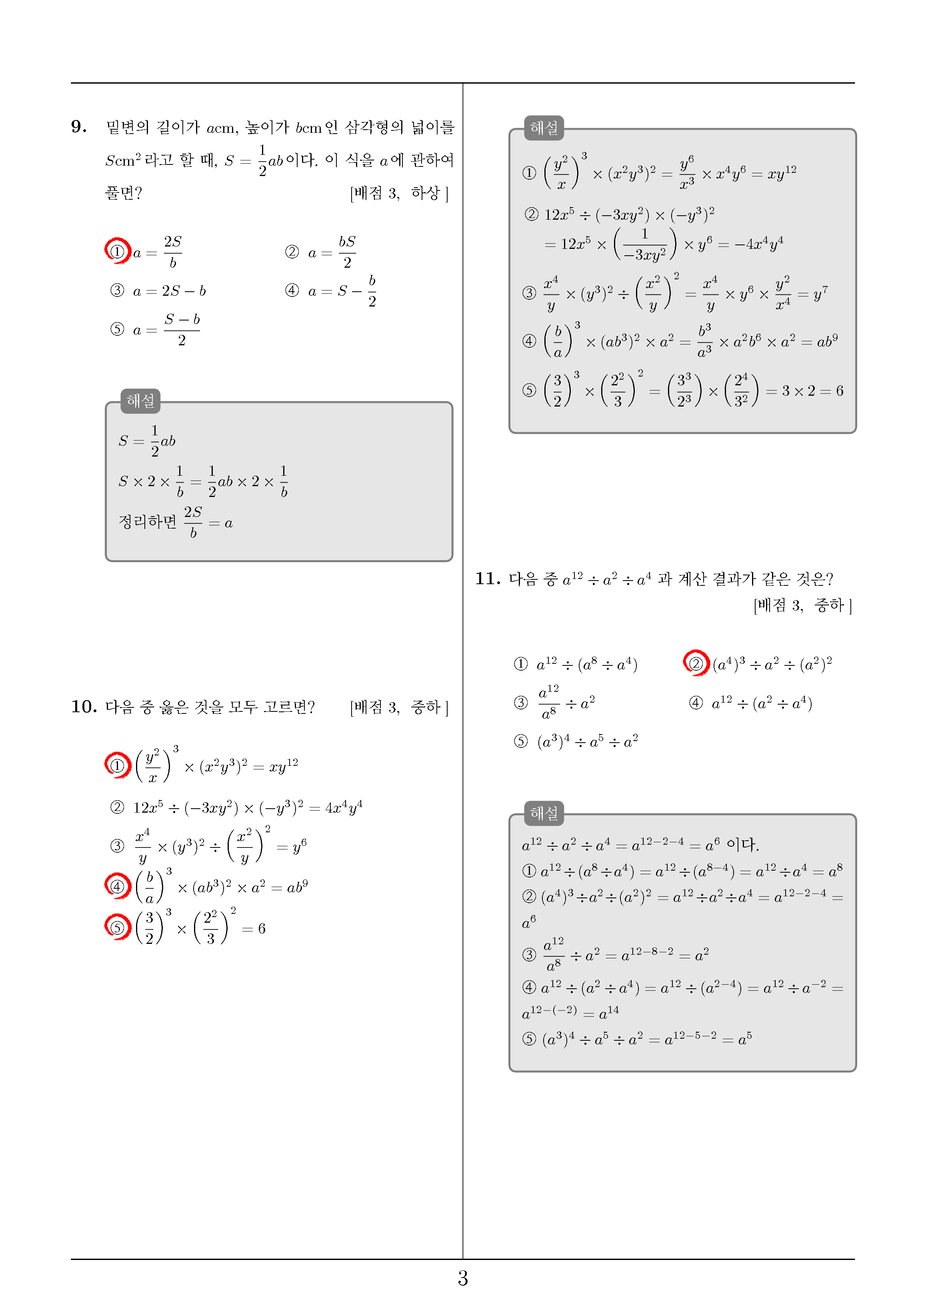 9. 밑변의 길이가 acm, 높이가 bcm인 삼각형의 넓이를
Scm²라고 할 때, S = 1/2 ab이다. 이 식을 a에 관하여
풀면? [배점 3, 하상]
① a = 2S/b ② a = bS/2
③ a = 2S − b ④ a = S − b/2
⑤ a = (S − b)/2
해설
S = 1/2 ab
S × 2 × 1/b = 1/2 ab × 2 × 1/b
정리하면 2S/b = a
10. 다음 중 옳은 것을 모두 고르면? [배점 3, 중하]
① (y²/x)³ × (x²y³)² = xy¹²
② 12x⁵ ÷ (−3xy²) × (−y³)² = 4x⁴y⁴
③ x⁴/y × (y³)² ÷ (x²/y)² = y⁶
④ (b/a)³ × (ab³)² × a² = ab⁹
⑤ (3/2)³ × (2²/3)² = 6
해설
① (y²/x)³ × (x²y³)² = y⁶/x³ × x⁴y⁶ = xy¹²
② 12x⁵ ÷ (−3xy²) × (−y³)²
= 12x⁵ × (1/−3xy²) × y⁶ = −4x⁴y⁴
③ x⁴/y × (y³)² ÷ (x²/y)² = x⁴/y × y⁶ × y²/x⁴ = y⁷
④ (b/a)³ × (ab³)² × a² = b³/a³ × a²b⁶ × a² = ab⁹
⑤ (3/2)³ × (2²/3)² = (3³/2³) × (2⁴/3²) = 3 × 2 = 6
11. 다음 중 a¹² ÷ a² ÷ a⁴ 과 계산 결과가 같은 것은?
[배점 3, 중하]
① a¹² ÷ (a⁸ ÷ a⁴) ② (a⁴)³ ÷ a² ÷ (a²)²
③ a¹²/a⁸ ÷ a² ④ a¹² ÷ (a² ÷ a⁴)
⑤ (a³)⁴ ÷ a⁵ ÷ a²
해설
a¹² ÷ a² ÷ a⁴ = a¹²⁻²⁻⁴ = a⁶ 이다.
① a¹² ÷ (a⁸ ÷ a⁴) = a¹² ÷ (a⁸⁻⁴) = a¹² ÷ a⁴ = a⁸
② (a⁴)³ ÷ a² ÷ (a²)² = a¹² ÷ a² ÷ a⁴ = a¹²⁻²⁻⁴ =
a⁶
③ a¹²/a⁸ ÷ a² = a¹²⁻⁸⁻² = a²
④ a¹² ÷ (a² ÷ a⁴) = a¹² ÷ (a²⁻⁴) = a¹² ÷ a⁻² =
a¹²⁻⁽⁻²⁾ = a¹⁴
⑤ (a³)⁴ ÷ a⁵ ÷ a² = a¹²⁻⁵⁻² = a⁵
3